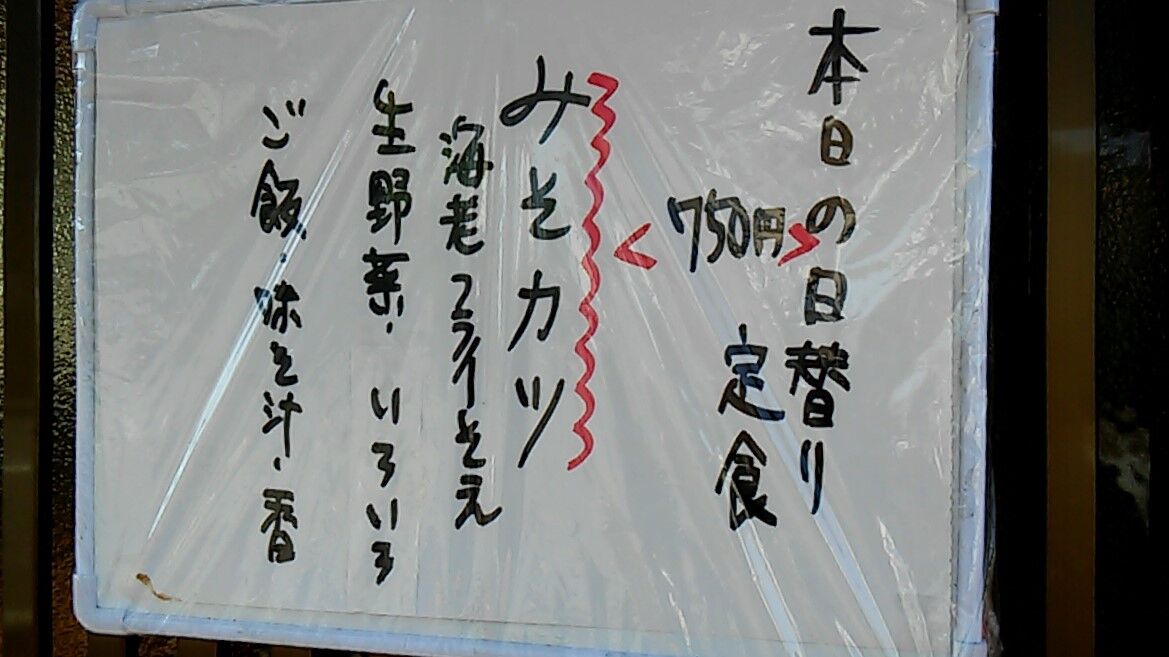 本日の日替り
定食
<750円>
みそカツ
海老フライそえ
生野菜・いろいろ
ご飯・味そ汁・香